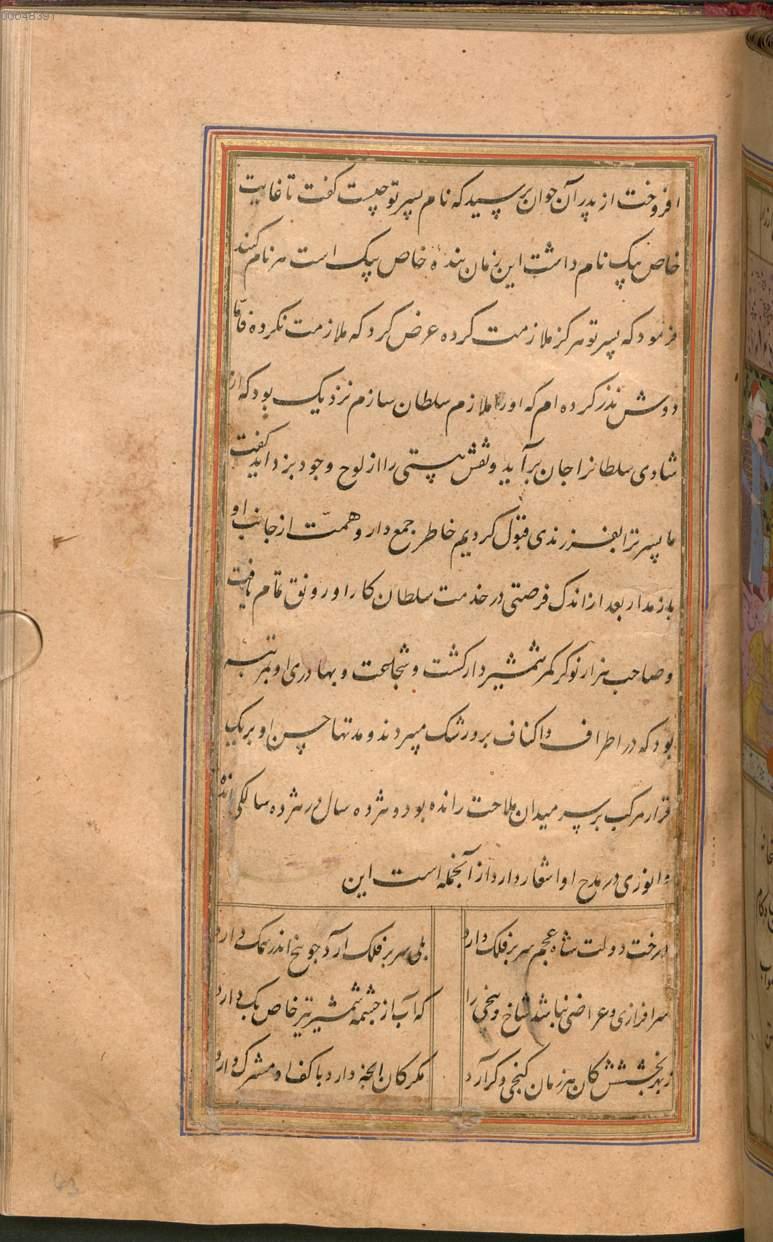 00048391
افروخت از پدر آن جوان پرسید که نام پسر تو چیست گفت تا غایت
خاص بیک نام داشت این زمان بنده خاص بیک است هر نام کنند
فرمود که پسر تو هرگز ملازمت کرده عرض کرد که ملازمت نکرده فاما
دوش نذر کرده ام که او را ملازم سلطان سازم نزدیک بود که از
شادی سلطانرا جان برآید و نقش هستی را از لوح وجود بزداید گفت
ما پسر ترا بفرزندی قبول کردیم خاطر جمع دار و همت از جانب او
باز مدار بعد از اندک فرصتی در خدمت سلطان کار او رونق تمام یافت
و صاحب هزار نوکر کمر شمشیر دار گشت و شجاعت و بهادری او بمرتبه
بود که در اطراف و اکناف برو رشک میبردند و مدتها حسن او بریک
قرار مرکب بر سر میدان ملاحت رانده بود و هژده سال در هژده سالگی
و انوری در مدح او اشعار دارد از آنجمله است این
درخت دولت شاه عجم سر بر فلک دارد
بلی سر بر فلک آرد چو بیخ اندر سمک دارد
سرافرازی و عراضی نباشد شاخ و بیخی را
که آب از چشمه شمشیر تیز خاص بک دارد
ز بهر بخشش کان هر زمان گنجی و کر آرد
مگر کان الحذر دارد با کف او مشترک دارد